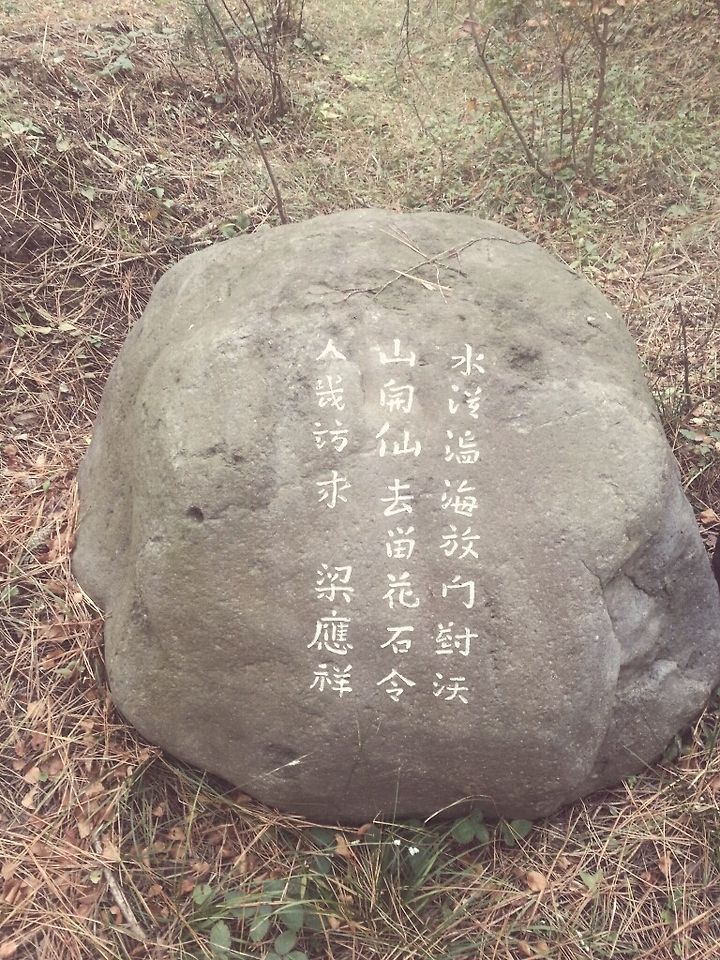 水溢海放門對沃
山開仙去留花石令
人幾訪求 梁應祥